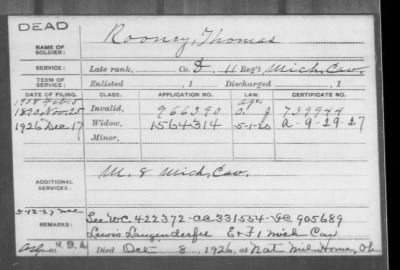 DEAD
NAME OF SOLDIER:
Rooney, Thomas
SERVICE:
Late rank, Co. I, 11 Reg't Mich. Cav.
TERM OF SERVICE:
Enlisted , 1 Discharged , 1
DATE OF FILING. CLASS. APPLICATION NO. LAW. CERTIFICATE NO.
1908 Feb. 5 age.
1890 Nov. 25 Invalid, 966390 O. J 739944
1926 Dec 17 Widow, 1564314 5-1-20 A-9-29-27
Minor,
M. & Mich. Cav.
ADDITIONAL SERVICES:
REMARKS:
See WC 422372 - CA 331554 - 905689
Lewis Langenderfer E & F 1 Mich Cav
N.B.A. Died Oct 8, 1926, at Nat. Mil. Home, Oh